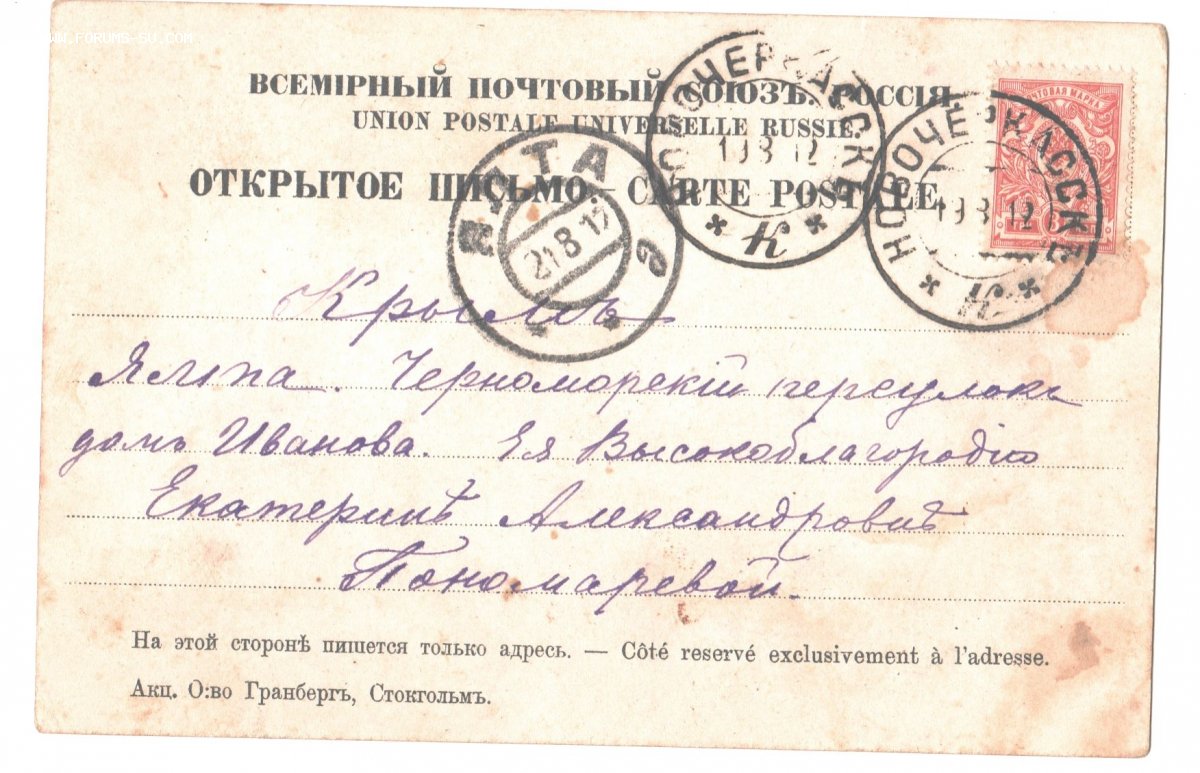 WWW.FORUMS-SU.COM
ВСЕМІРНЫЙ ПОЧТОВЫЙ СОЮЗЪ. РОССІЯ.
UNION POSTALE UNIVERSELLE RUSSIE.
ОТКРЫТОЕ ПИСЬМО. — CARTE POSTALE.
НОВОЧЕРКАССКЪ
19 8 12
К
НОВОЧЕРКАССКЪ
19 8 12
ПОЧТОВАЯ МАРКА
ЯЛТА
21 8 12
Крымъ
Ялта. Черноморскій переулокъ
домъ Иванова. Ея Высокоблагородію
Екатеринѣ Александровнѣ
Пономаревой.
На этой сторонѣ пишется только адресъ. — Côté reservé exclusivement à l'adresse.
Акц. О:во Гранбергъ, Стокгольмъ.